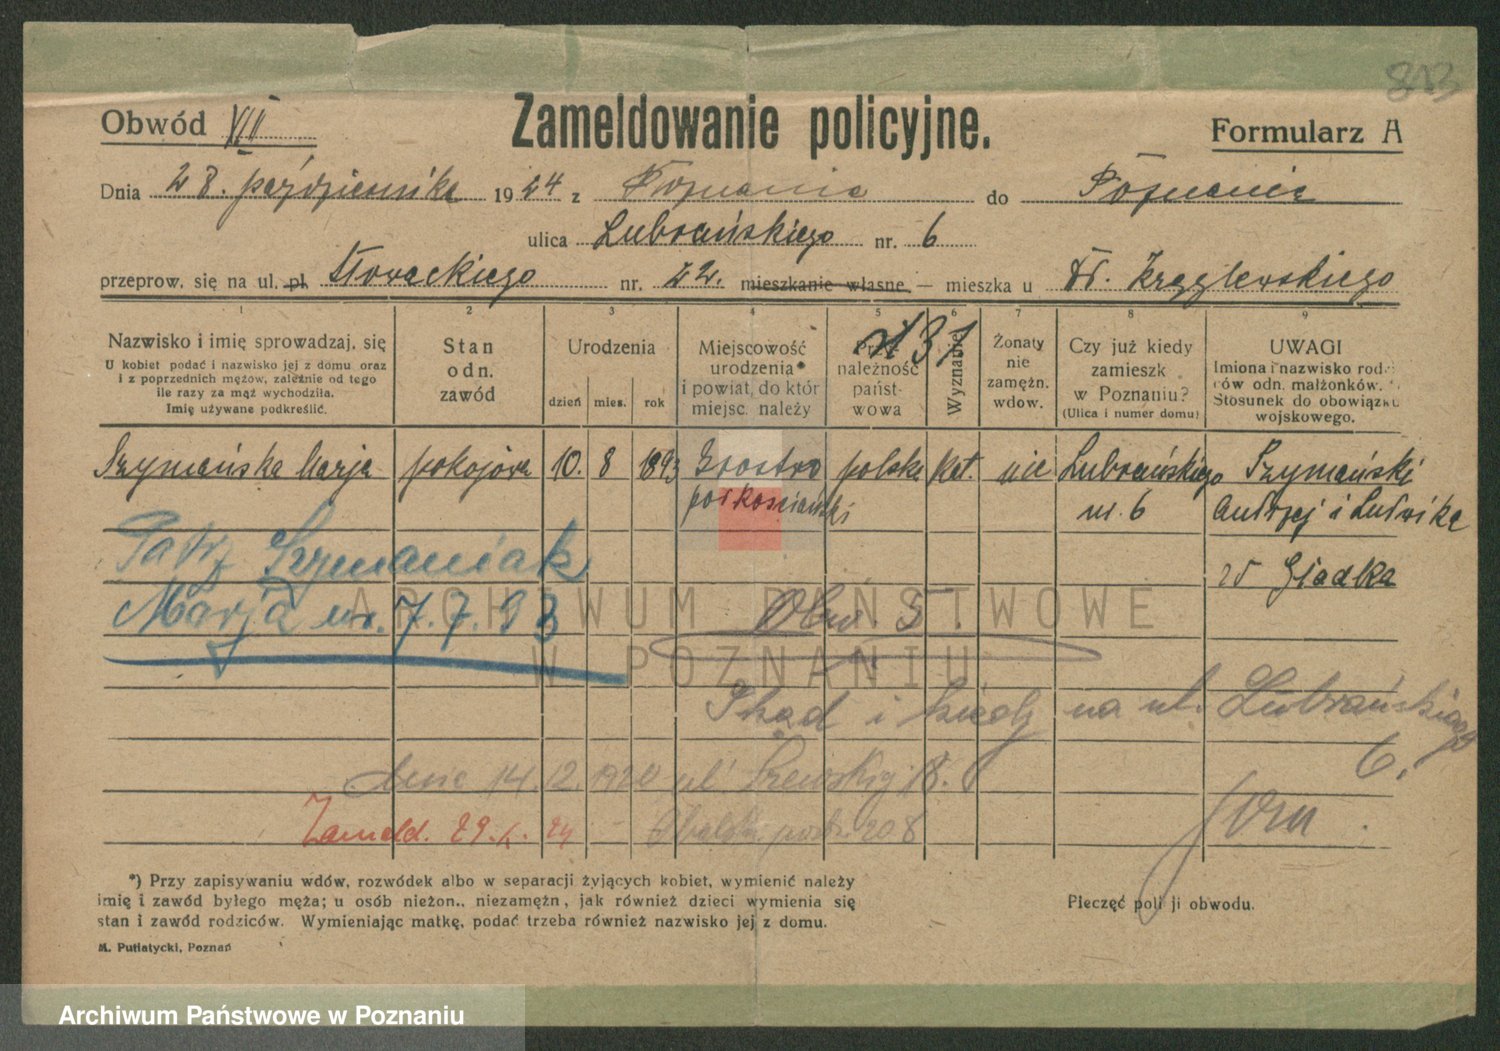 813
Obwód VIII Zameldowanie policyjne. Formularz A
Dnia 28. października 1924 z Poznania do Poznania
ulica Lubrańskiego nr. 6
przeprow. się na ul. pl. Słowackiego nr. 22. mieszkanie własne — mieszka u
1 2 3 4 5 6 7 8 9
Nazwisko i imię sprowadzaj. się
U kobiet podać i nazwisko jej z domu oraz
i z poprzednich mężów, zależnie od tego
ile razy za mąż wychodziła.
Imię używane podkreślić.
Stan
odn.
zawód
Urodzenia
dzień mies. rok
Miejscowość
urodzenia*
i powiat, do któr
miejsc. należy
należność
państ-
wowa
Wyznanie
Żonaty
nie
zamężn.
wdow.
Czy już kiedy
zamieszk
w Poznaniu?
(Ulica i numer domu)
UWAGI
Imiona i nazwisko rodzi
ców odn. małżonków.
Stosunek do obowiązku
wojskowego.
Szymańska Marja pokojowa 10. 8 1893 polska kat. nie Lubrańskiego Szymański
nr. 6 Andrzej i Ludwika
Patrz Szymaniak
Marja ur. 7.7.93
z Gładka
Obw. 5
ARCHIWUM PAŃSTWOWE
W POZNANIU
Skąd i kiedy na ul. Lubrańskiego
6.
dnia 14.12.1920 ul. Szewskiej 18.
Zameld. 29.
*) Przy zapisywaniu wdów, rozwódek albo w separacji żyjących kobiet, wymienić należy
imię i zawód byłego męża; u osób nieżon., niezamężn, jak również dzieci wymienia się
stan i zawód rodziców. Wymieniając matkę, podać trzeba również nazwisko jej z domu.
Pieczęć poli ji obwodu.
M. Putiatycki, Poznań
Archiwum Państwowe w Poznaniu